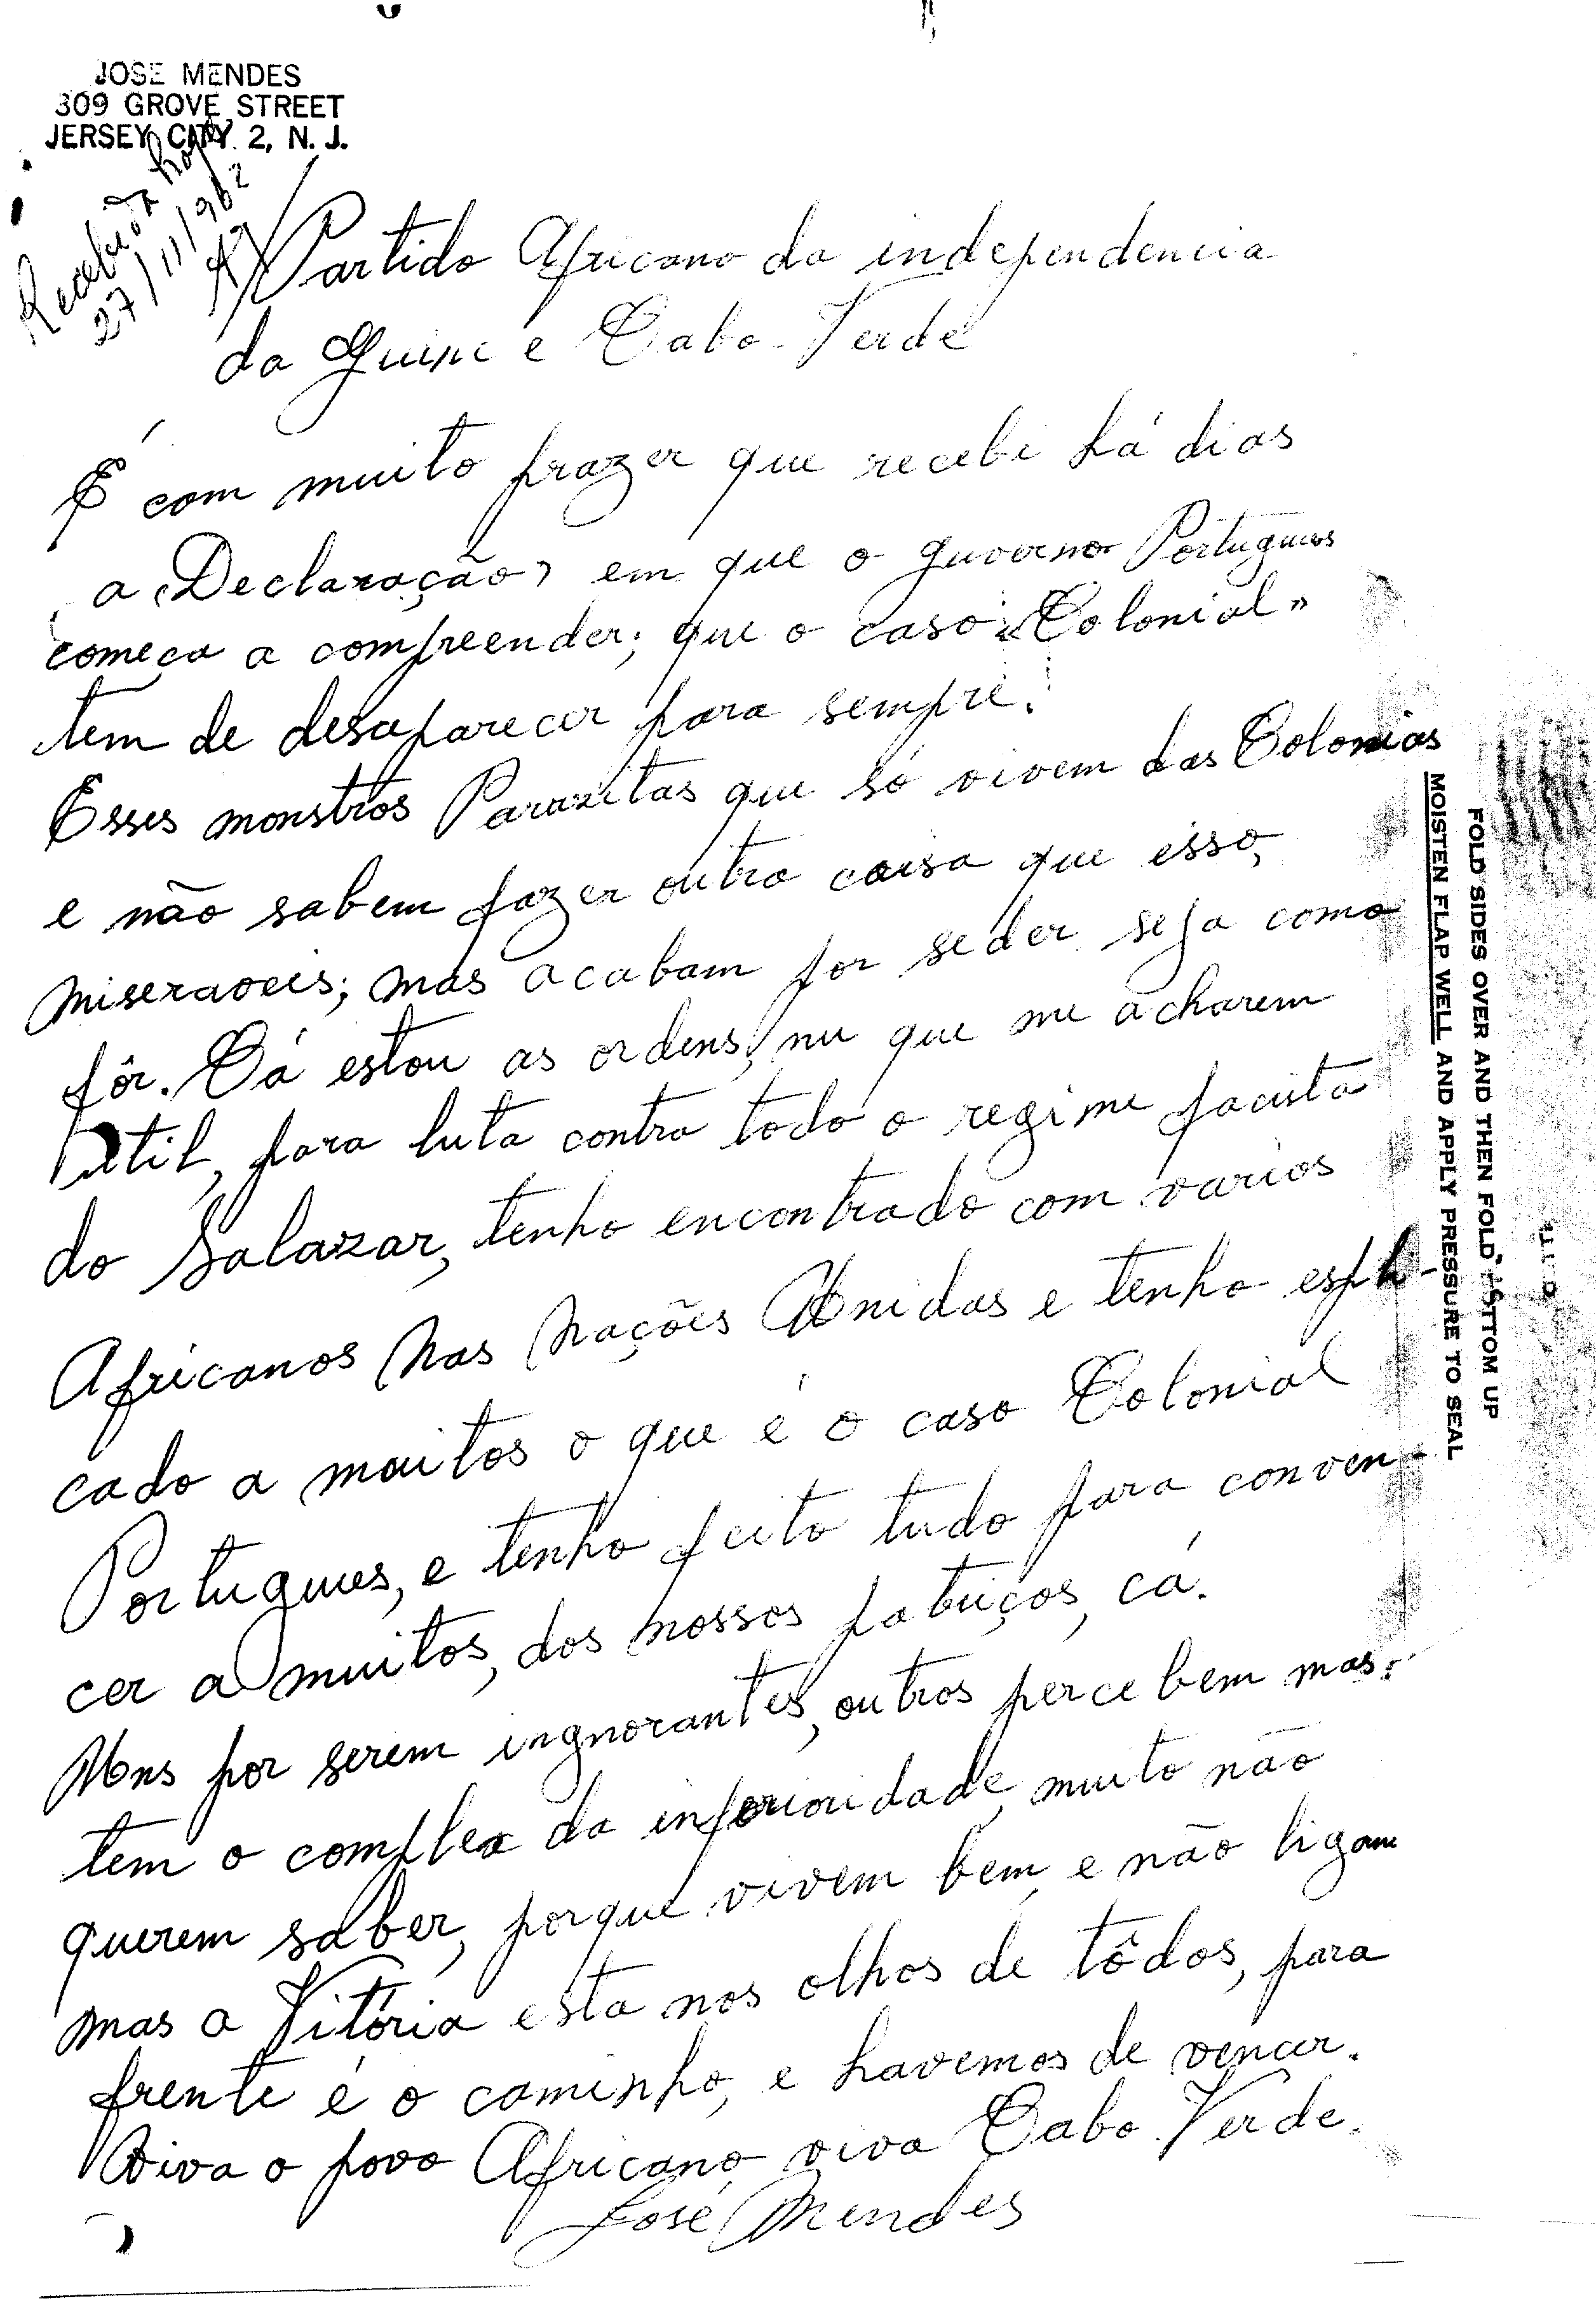 JOSE MENDES
309 GROVE STREET
JERSEY CITY 2, N. J.
Recebida hoje
27/11/962
Partido Africano da independencia
da Guine e Cabo-Verde
É com muito prazer que recebi há dias
a Declaração, em que o guverno Portugues
começa a compreender; que o caso «Colonial»
tem de desaparecer para sempre.
Esses monstros Parazitas que só vivem das Colonias
e não sabem fazer outra coisa que isso,
miseraveis; mas acabam por seder seja como
fôr. Cá estou as ordens, nu que me acharem
util, para luta contra todo o regime facista
do Salazar, tenho encontrado com varios
Africanos nas Nações Unidas e tenho espli-
cado a muitos o que é o caso Colonial
Portugues, e tenho feito tudo para conven-
cer a muitos, dos nossos patriços, cá.
Uns por serem ingnorantes, outros percebem mas
tem o complex da inferioridade, muito não
querem saber, porque vivem bem, e não ligam
mas a Vitória esta nos olhos de tôdos, para
frente é o caminho, e havemos de vencer.
Viva o povo Africano, viva Cabo Verde.
José Mendes
FOLD SIDES OVER AND THEN FOLD BOTTOM UP
MOISTEN FLAP WELL AND APPLY PRESSURE TO SEAL